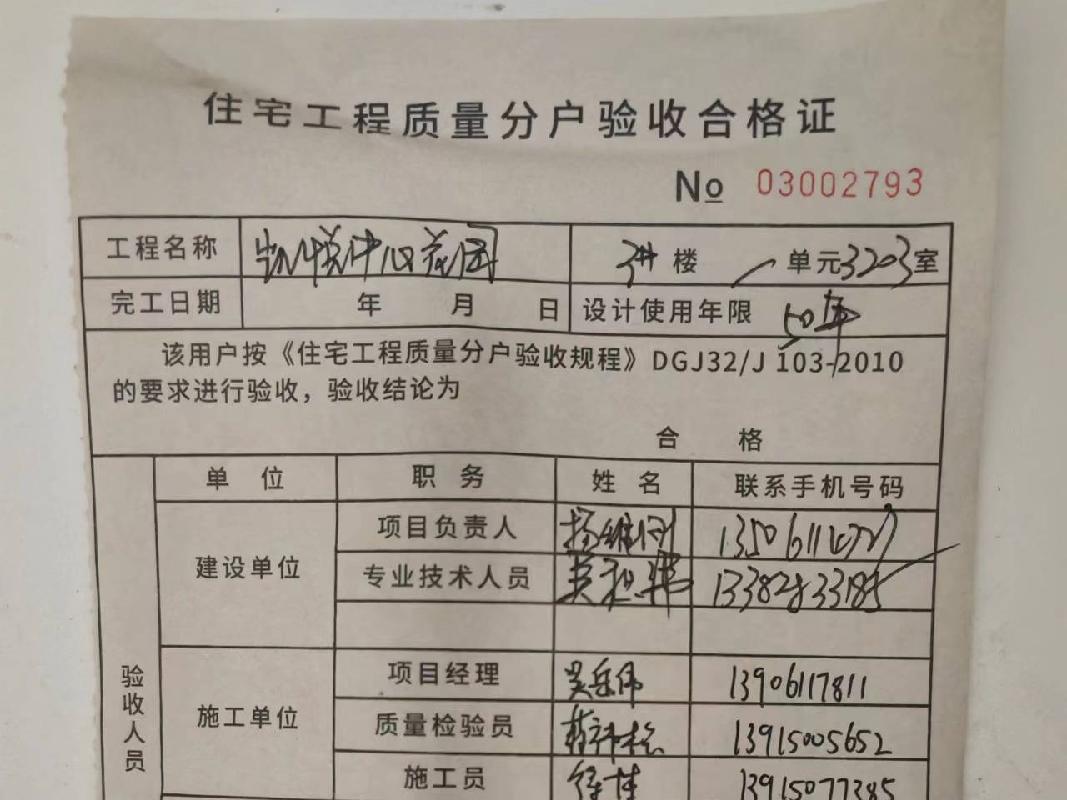 住宅工程质量分户验收合格证
No 03002793
工程名称 凯悦中心花园 3# 楼 / 单元3203室
完工日期 年 月 日 设计使用年限 50年
该用户按《住宅工程质量分户验收规程》DGJ32/J 103-2010
的要求进行验收，验收结论为
合 格
验收人员
单 位 职 务 姓 名 联系手机号码
建设单位
项目负责人
专业技术人员 13382833185
施工单位
项目经理 吴岳伟 13906117811
质量检验员 13915005652
施工员 13915077385